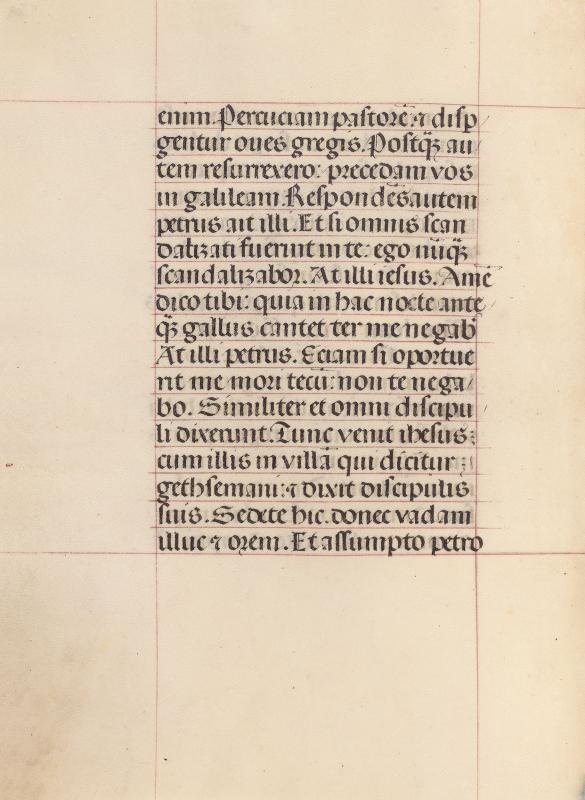 enim. Percuciam pastorē: ⁊ disp
gentur oues gregis. Postꝙ̄ au
tem resurrexero: precedam vos
in galileam. Respondēs autem
petrus ait illi. Et si omnis scan
dalizati fuerint in te: ego nūꝙ̄
scandalizabor. At illi iesus. Amē
dico tibi: quia in hac nocte ante
ꝙ̄ gallus cantet ter me negab̄
At illi petrus. Eciam si oportue
rit me mori tecū: non te nega/
bo. Similiter et omni discipu/
li dixerunt. Tunc venit ihesus
cum illis in villā qui dicitur
gethsemani: ⁊ dixit discipulis
suis. Sedete hic. donec vadam
illuc ⁊ orem. Et assumpto petro